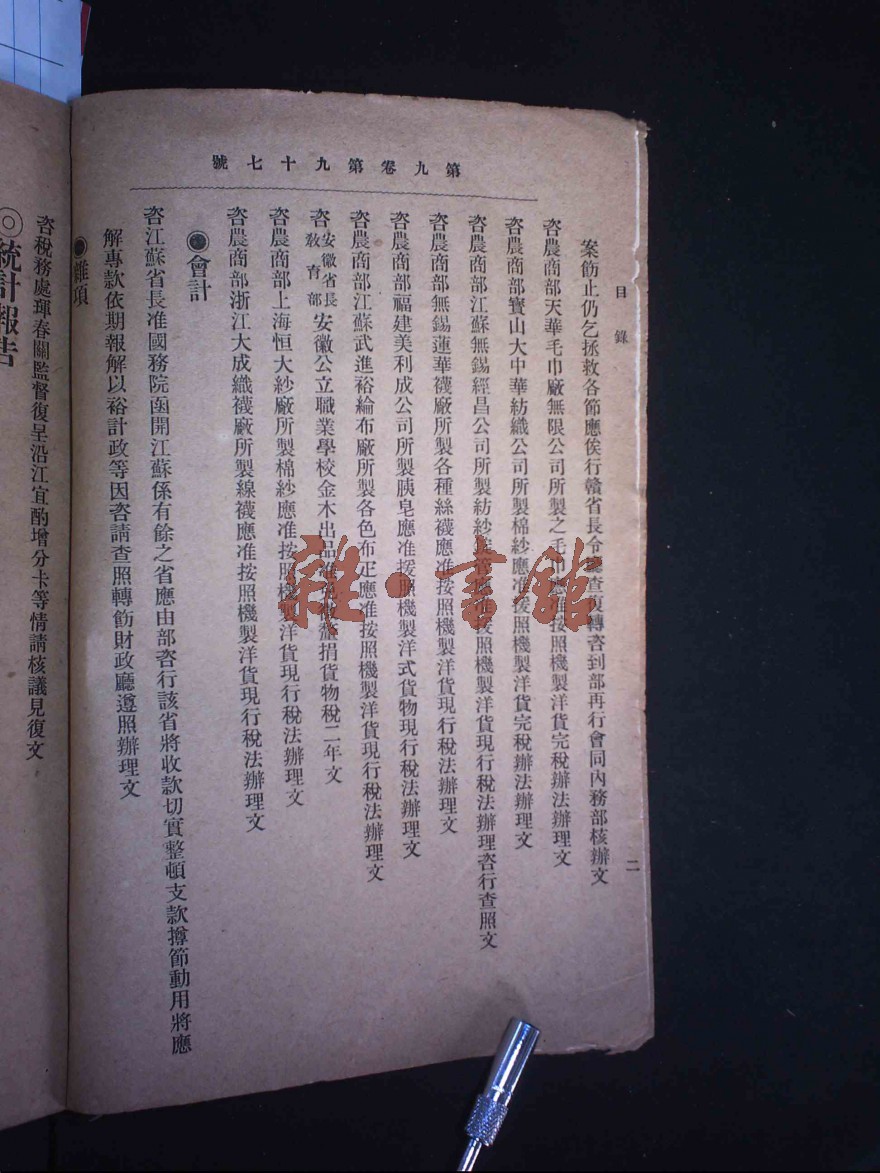 第九卷第九十七號
目錄
二
案飭止仍乞拯救各節應俟行贛省長令查復轉咨到部再行會同內務部核辦文
咨農商部天華毛巾廠無限公司所製之毛巾應准按照機製洋貨完稅辦法辦理文
咨農商部寶山大中華紡織公司所製棉紗應准援照機製洋貨完稅辦法辦理文
咨農商部江蘇無錫經昌公司所製紡紗應准援照機製洋貨現行稅法辦理咨行查照文
咨農商部無錫蓮華襪廠所製各種絲襪應准按照機製洋貨現行稅法辦理文
咨農商部福建美利成公司所製胰皂應准援照機製洋式貨物現行稅法辦理文
咨農商部江蘇武進裕綸布廠所製各色布疋應准按照機製洋貨現行稅法辦理文
咨安徽省長教育部安徽公立職業學校金木出品准免捐貨物稅二年文
咨農商部上海恒大紗廠所製棉紗應准按照機製洋貨現行稅法辦理文
咨農商部浙江大成織襪廠所製線襪應准按照機製洋貨現行稅法辦理文
會計
咨江蘇省長准國務院函開江蘇係有餘之省應由部咨行該省將收款切實整頓支款撙節動用將應
解專款依期報解以裕計政等因咨請查照轉飭財政廳遵照辦理文
雜項
咨稅務處琿春關監督復呈沿江宜酌增分卡等情請核議見復文
◎統計報告
雜·書館